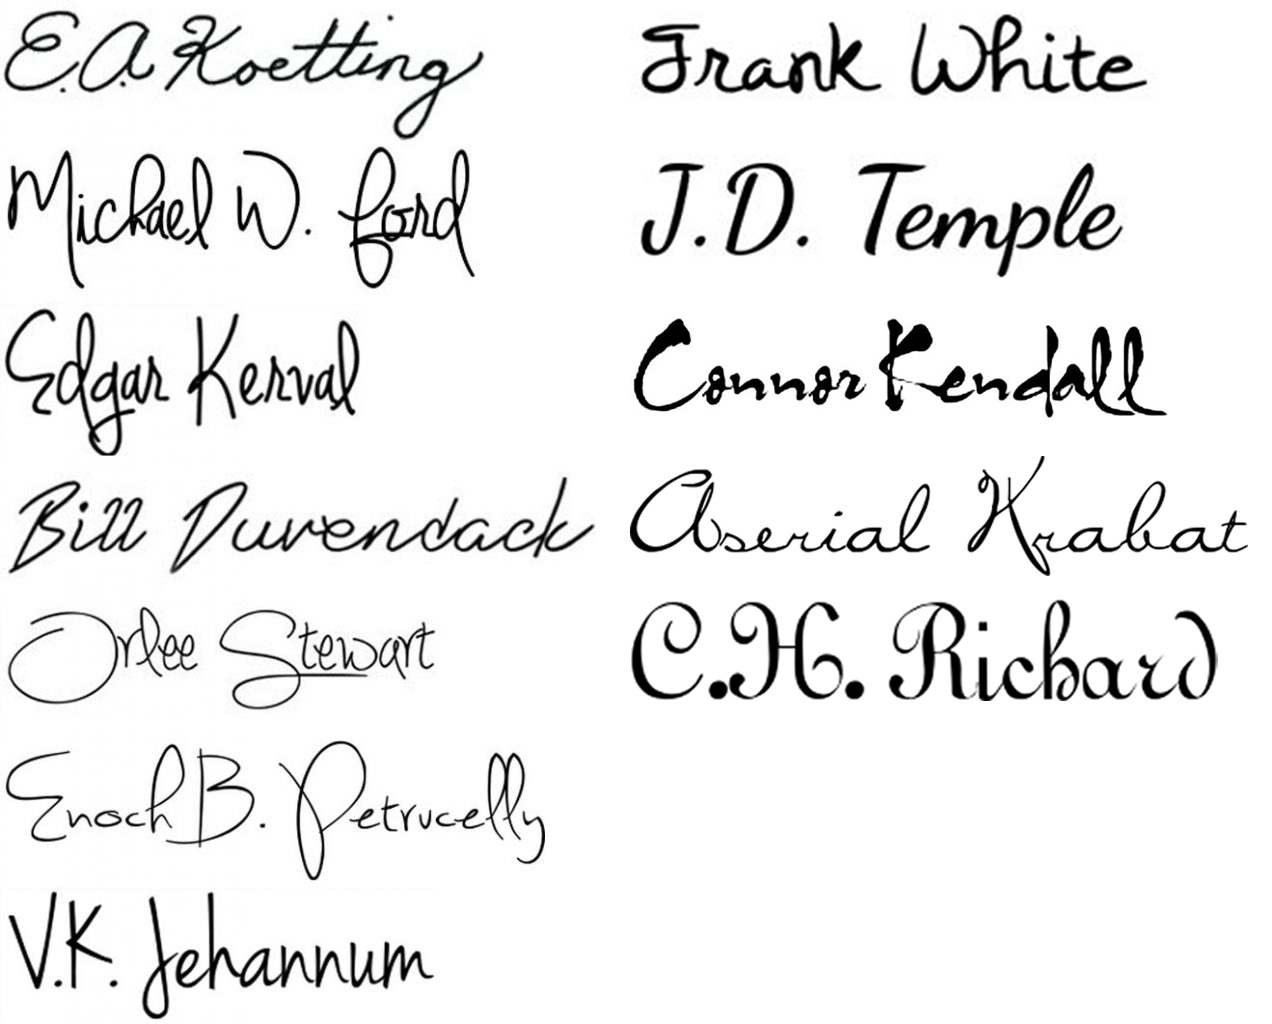 E.A. Koetting
Michael W. Ford
Edgar Kerval
Bill Duvendack
Orlee Stewart
Enoch B. Petrucelly
V.K. Jehannum
Frank White
J.D. Temple
Connor Kendall
Aserial Krabat
C.H. Richard